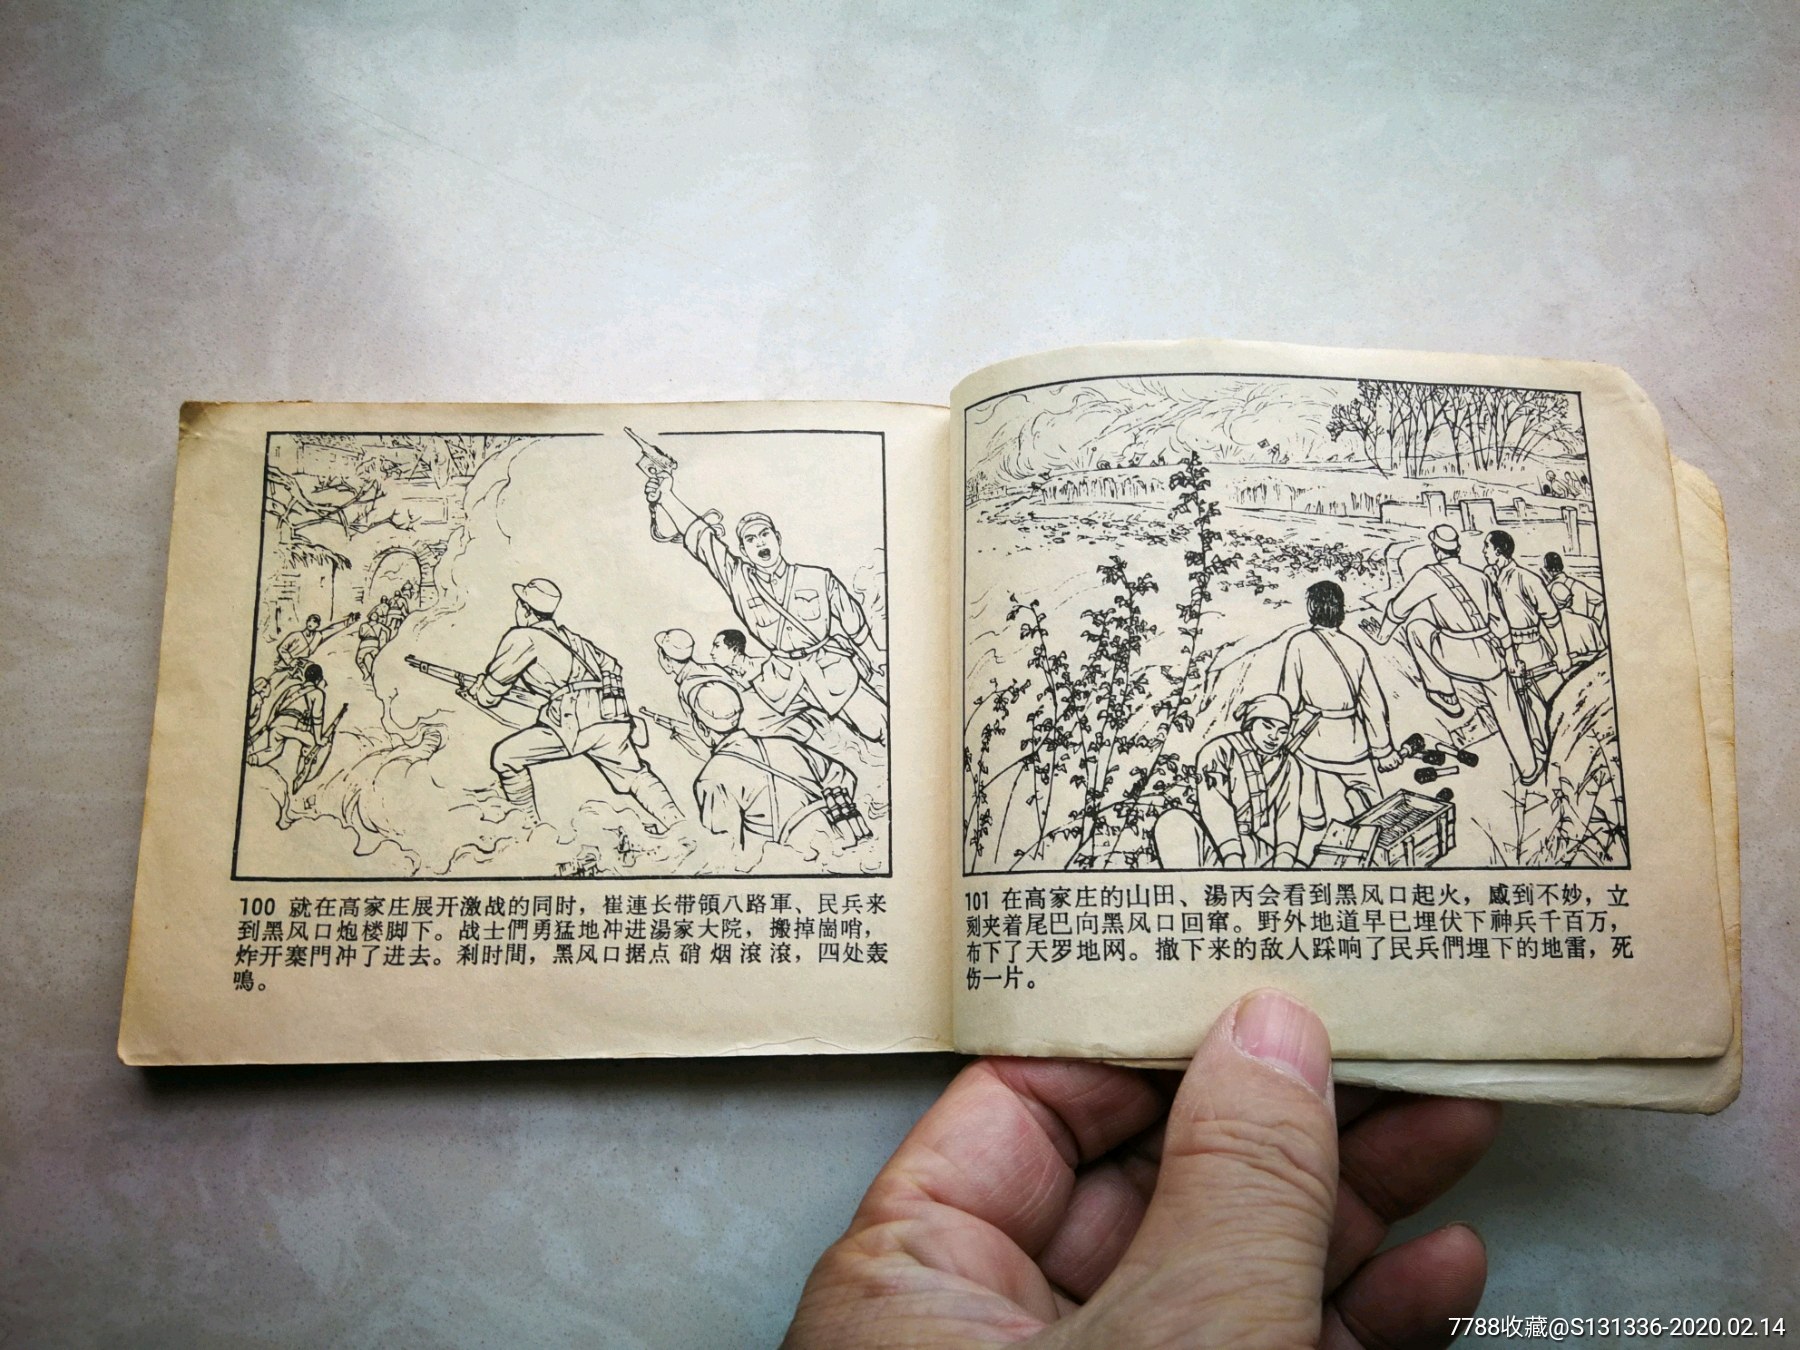 100 就在高家庄展开激战的同时，崔連长带領八路軍、民兵来
到黑风口炮楼脚下。战士們勇猛地冲进湯家大院，搬掉崗哨，
炸开寨門冲了进去。刹时間，黑风口据点硝烟滾滾，四处轰
鳴。
101 在高家庄的山田、湯丙会看到黑风口起火，感到不妙，立
刻夹着尾巴向黑风口回窜。野外地道早已埋伏下神兵千百万，
布下了天罗地网。撤下来的敌人踩响了民兵們埋下的地雷，死
伤一片。
7788收藏@S131336-2020.02.14